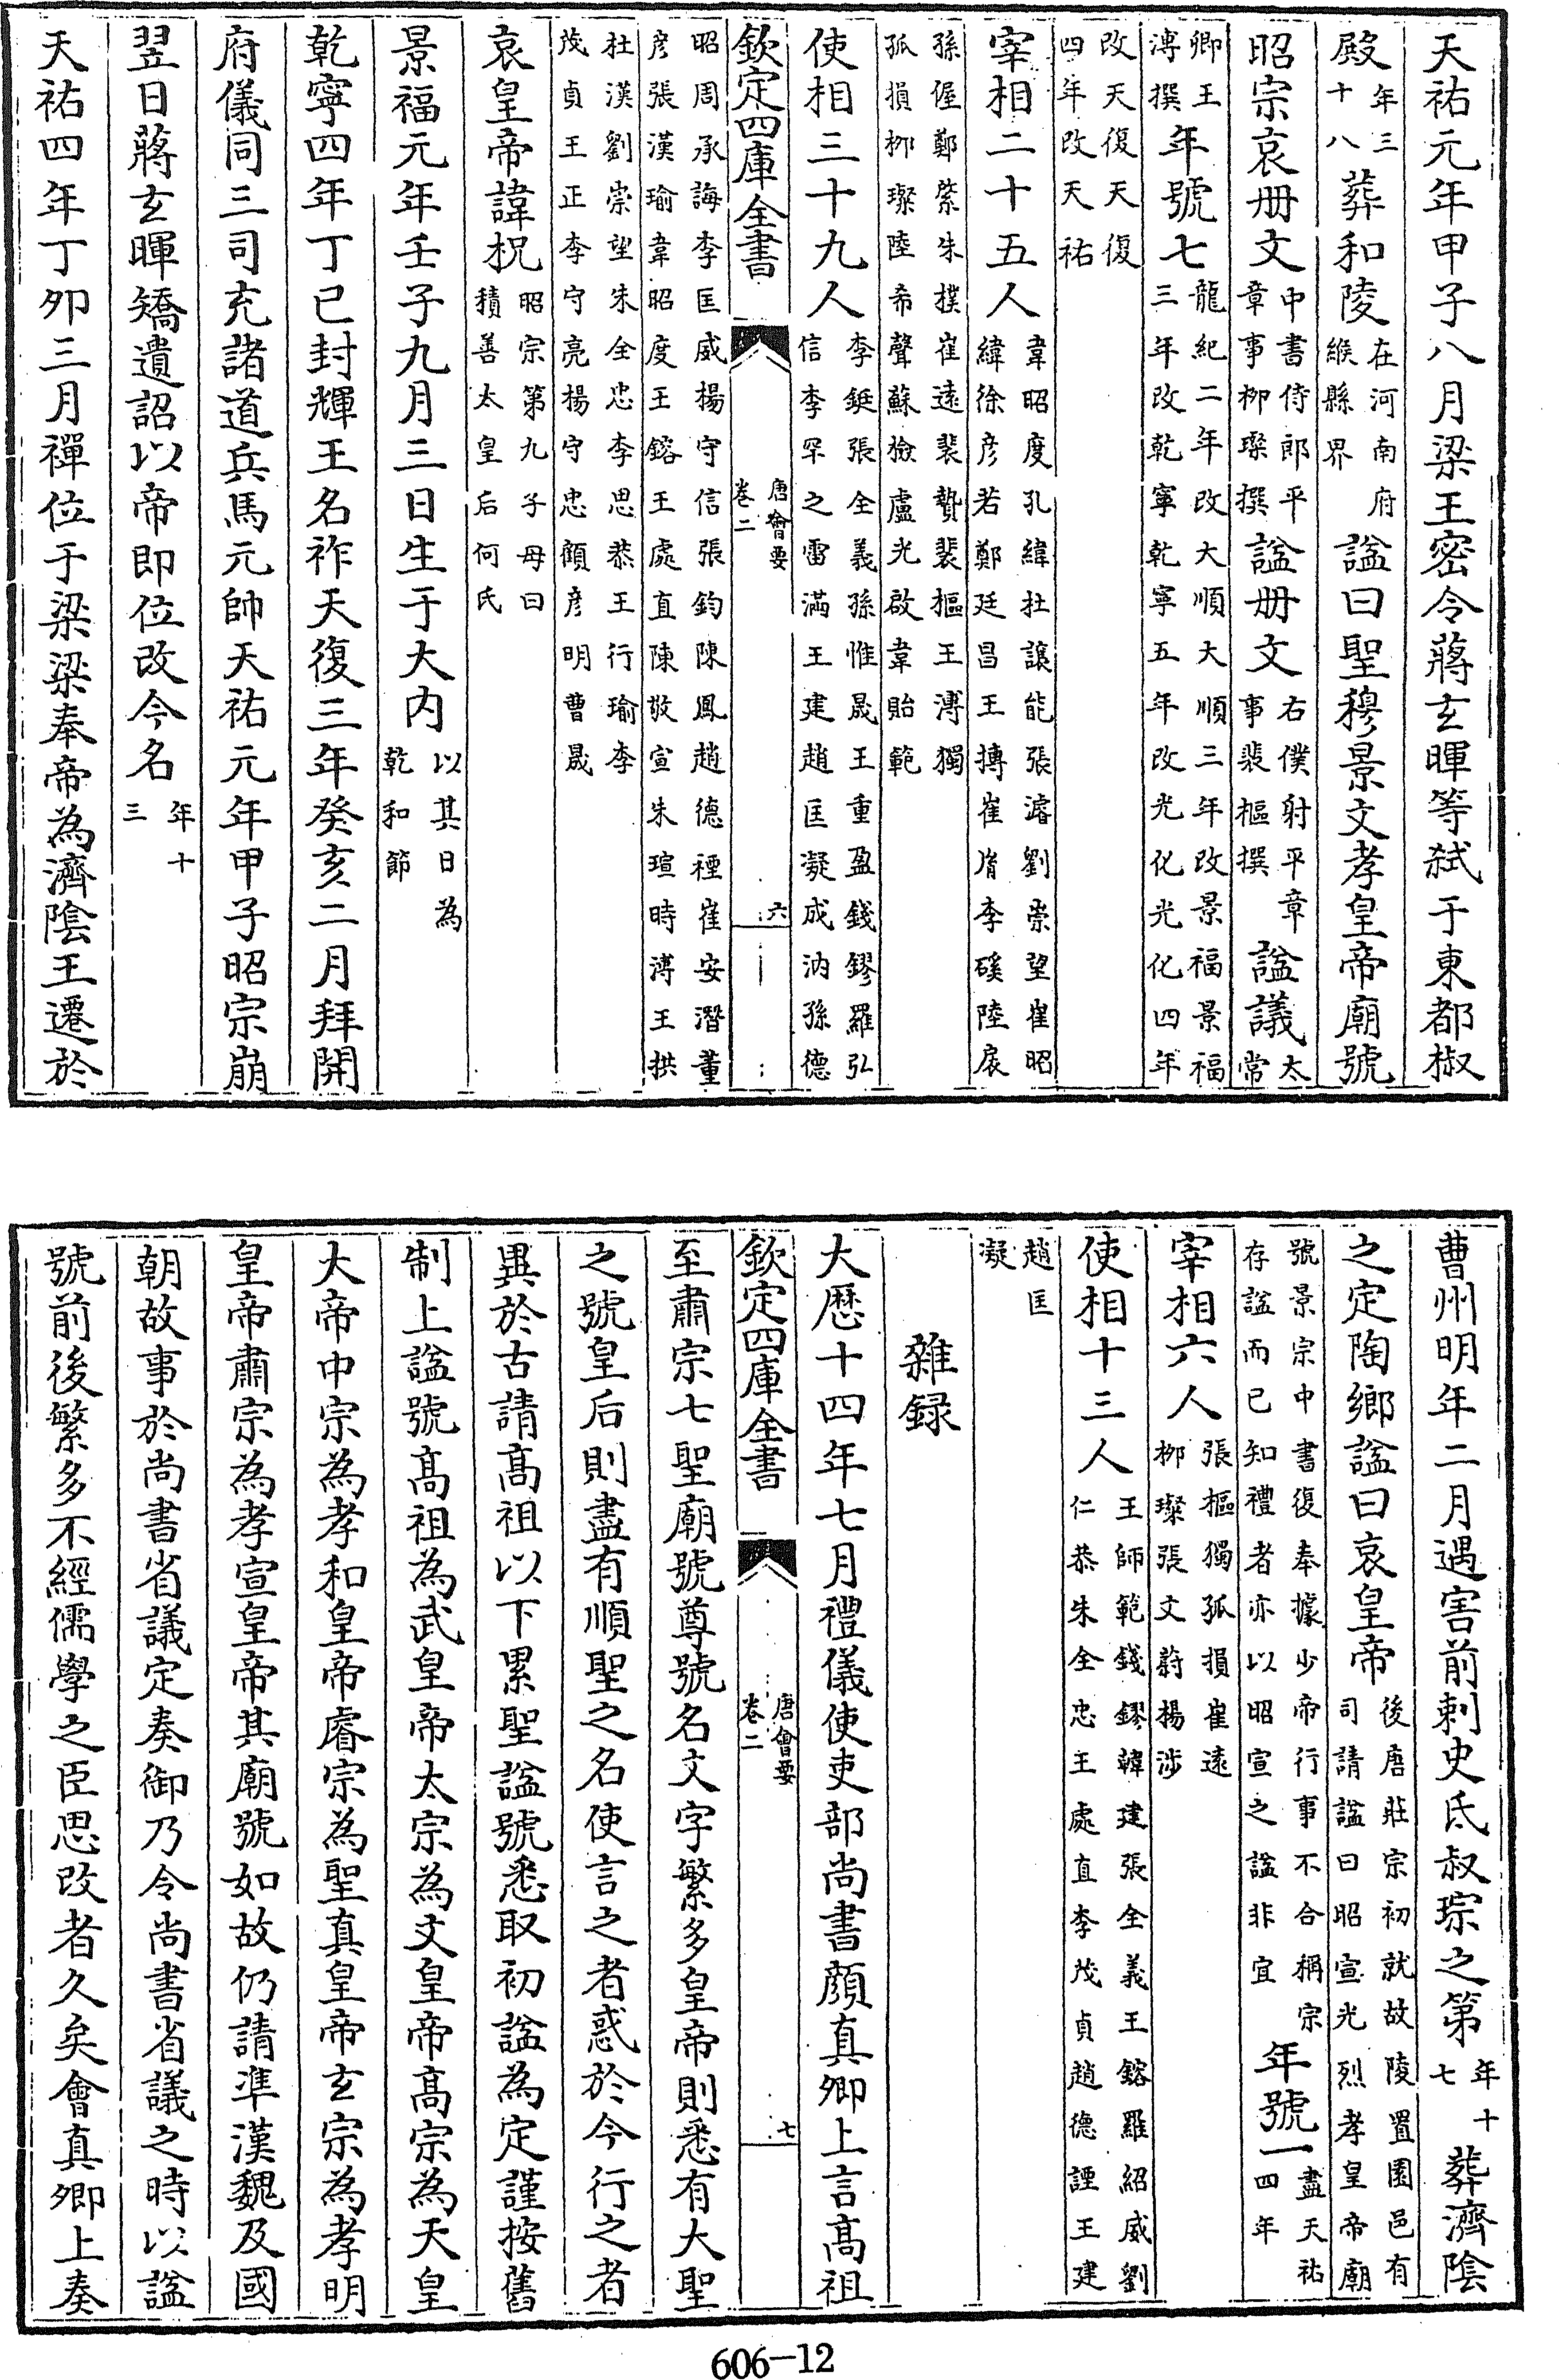 天祐元年甲子八月梁王密令蔣玄暉等弑于東都椒
殿年三十八葬和陵在河南府緱縣界諡曰聖穆景文孝皇帝廟號
昭宗哀册文中書侍郎平章事柳璨撰諡册文右僕射平章事裴樞撰諡議太常
卿王溥撰年號七龍紀二年改大順大順三年改景福景福三年改乾寧乾寧五年改光化光化四年
改天復天復四年改天祐
宰相二十五人韋昭度孔緯杜讓能張濬劉崇望崔昭緯徐彦若鄭延昌王摶崔胤李磎陸扆
孫偓鄭綮朱朴崔遠裴贄裴樞王溥獨孤損柳璨陸希聲蘇檢盧光啟韋貽範
使相三十九人李鋋張全義孫惟晟王重盈錢鏐羅弘信李罕之雷滿王建趙匡凝成汭孫德
欽定四庫全書
唐會要
卷二
六
昭周承誨李匡威楊守信張鈞陳鳳趙德禋崔安潛董彦張漢瑜韋昭度王鎔王處直陳敬宣朱瑄時溥王拱
杜漢劉崇望朱全忠李思恭王行瑜李茂貞王正李守亮楊守忠顧彦明曹晟
哀皇帝諱柷昭宗第九子母曰積善太皇后何氏
景福元年壬子九月三日生于大内以其日為乾和節
乾寧四年丁巳封輝王名祚天復三年癸亥二月拜開
府儀同三司充諸道兵馬元帥天祐元年甲子昭宗崩
翌日蔣玄暉矯遺詔以帝即位改今名年十三
天祐四年丁卯三月禪位于梁梁奉帝為濟陰王遷於
曹州明年二月遇害前刺史氏叔琮之第年十七葬濟陰
之定陶鄉諡曰哀皇帝後唐莊宗初就故陵置園邑有司請諡曰昭宣光烈孝皇帝廟
號景宗中書復奉據少帝行事不合稱宗存諡而已知禮者亦以昭宣之諡非宜年號一盡天祐四年
宰相六人張樞獨孤損崔遠柳璨張文蔚楊涉
使相十三人王師範錢鏐韓建張全義王鎔羅紹威劉仁恭朱全忠王處直李茂貞趙德諲王建
趙匡凝
雜録
大厯十四年七月禮儀使吏部尚書顔真卿上言髙祖
欽定四庫全書
唐會要
卷二
七
至肅宗七聖廟號尊號名文字繁多皇帝則悉有大聖
之號皇后則盡有順聖之名使言之者惑於今行之者
異於古請髙祖以下累聖諡號悉取初諡為定謹按舊
制上諡號髙祖為武皇帝太宗為文皇帝髙宗為天皇
大帝中宗為孝和皇帝睿宗為聖真皇帝玄宗為孝明
皇帝肅宗為孝宣皇帝其廟號如故仍請準漢魏及國
朝故事於尚書省議定奏御乃令尚書省議之時以諡
號前後繁多不經儒學之臣思改者久矣會真卿上奏
606—12